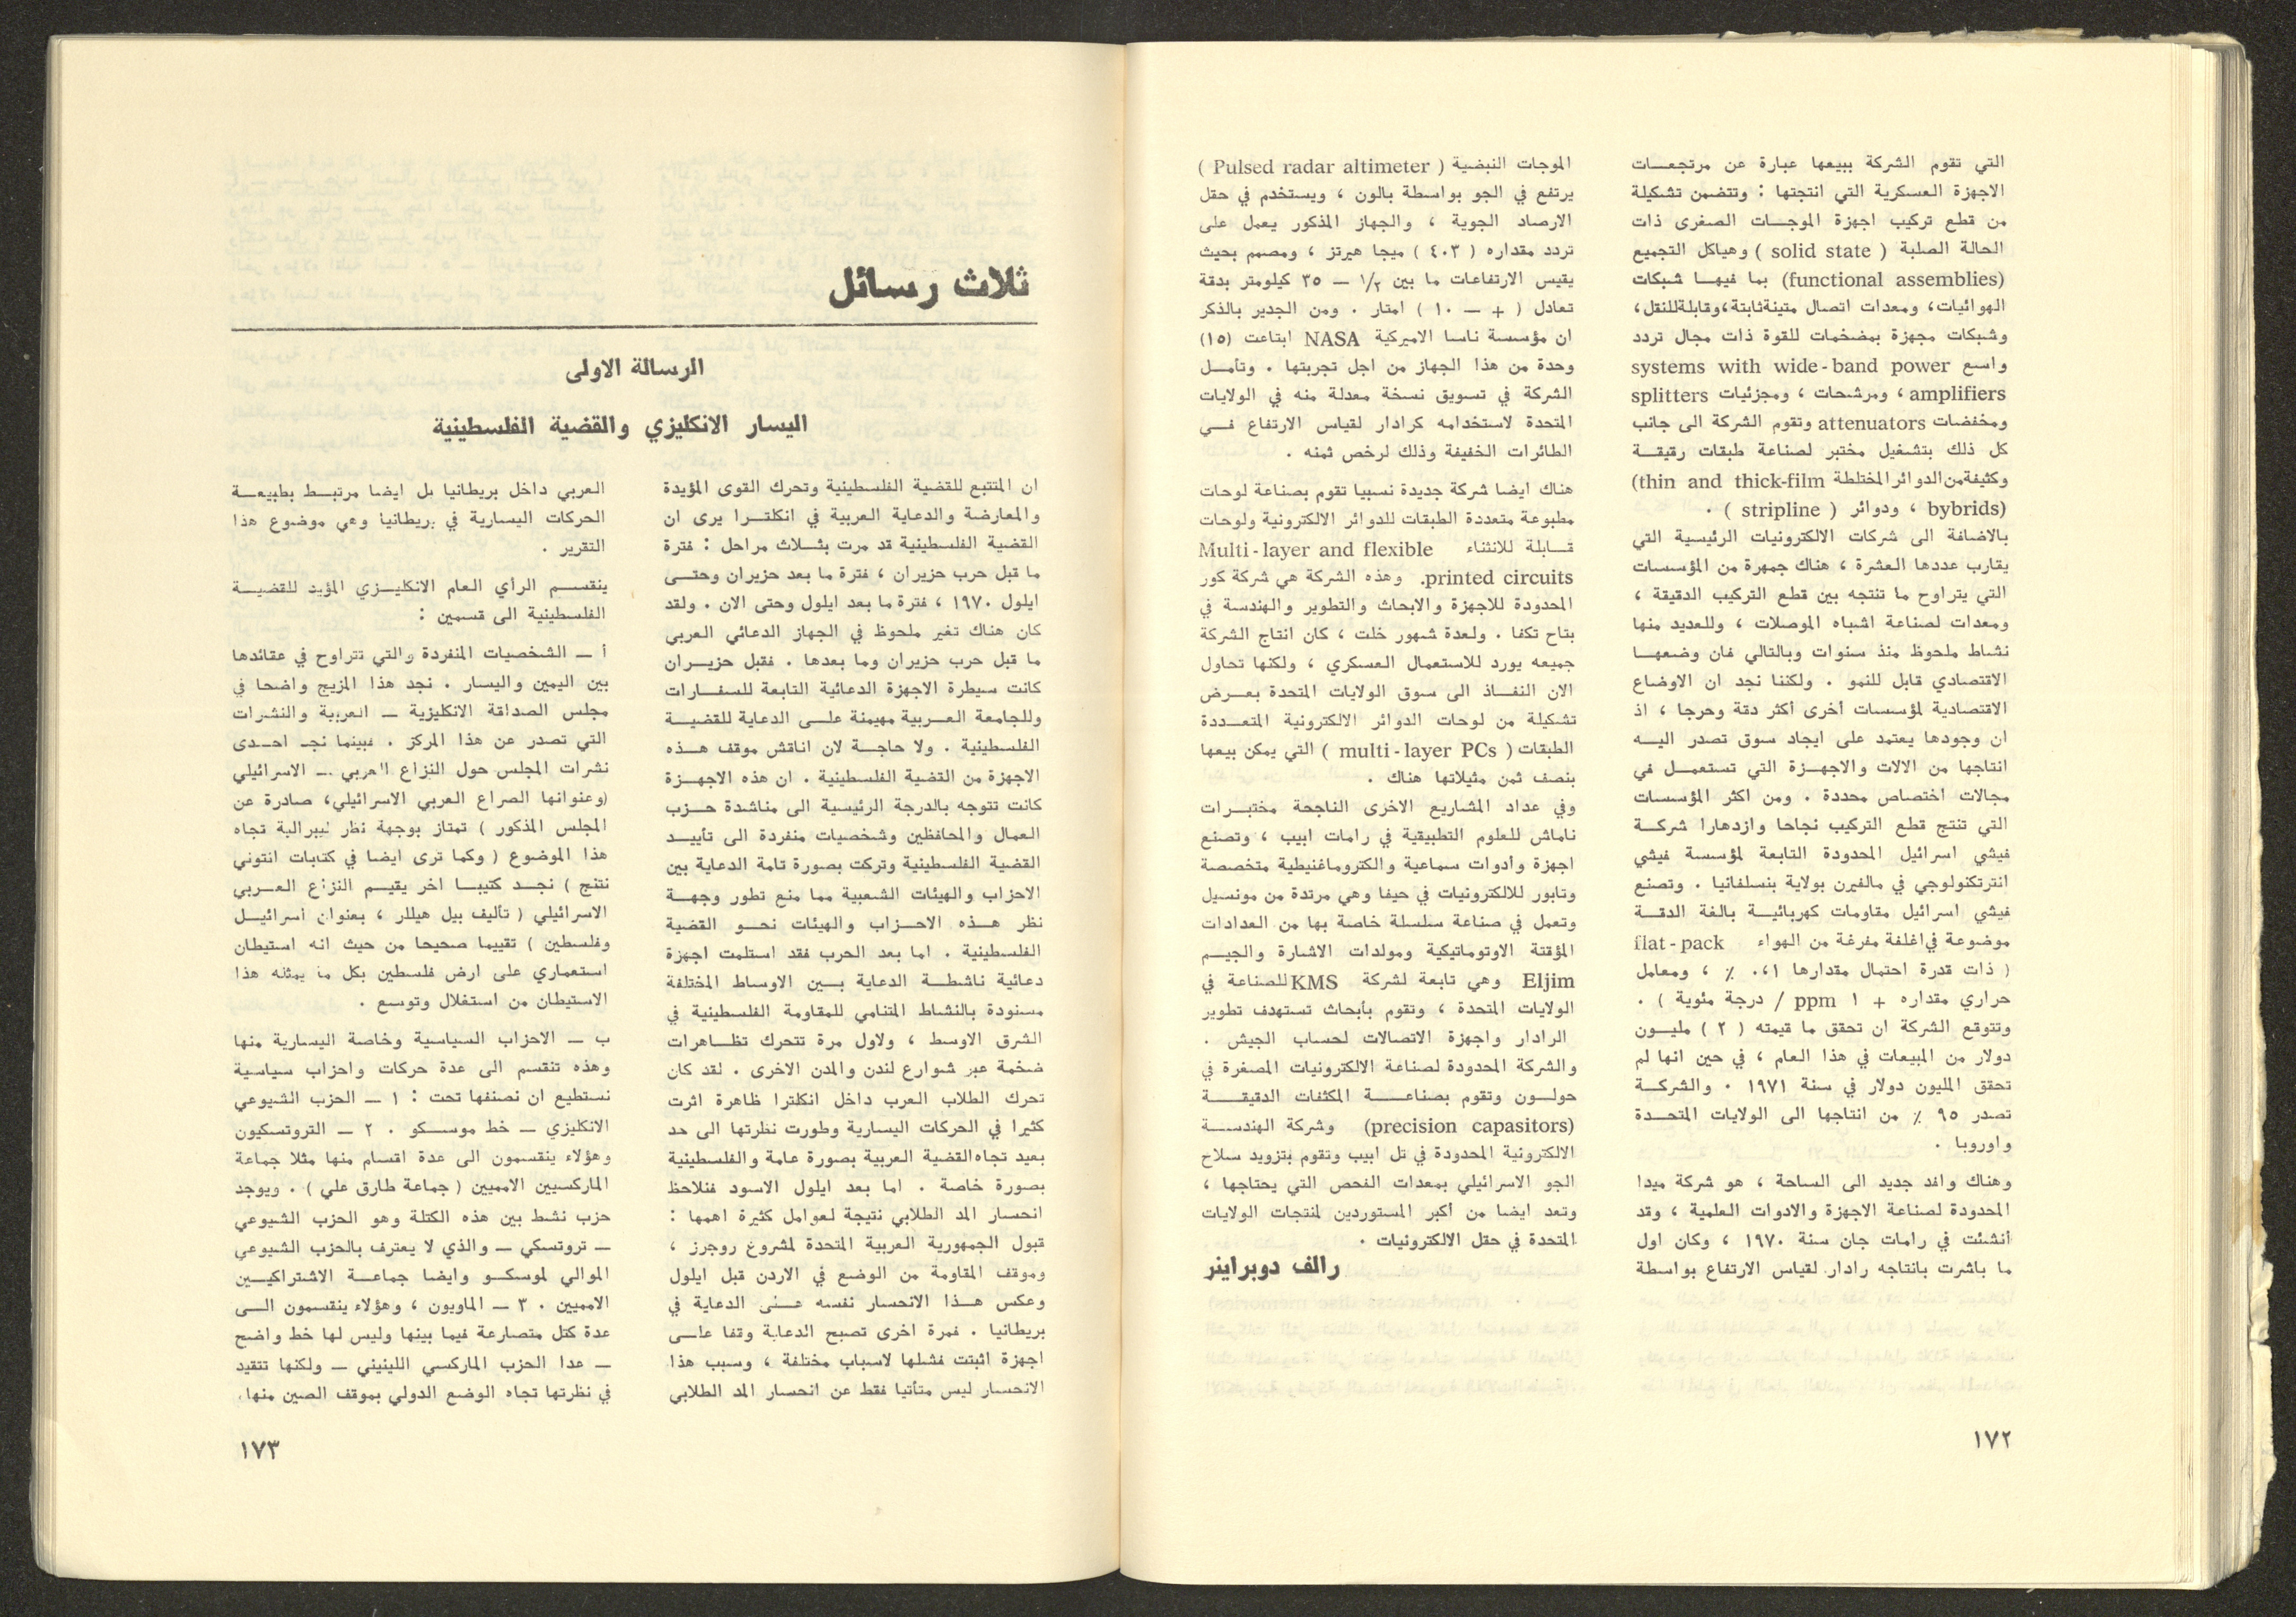 التي تقوم الشركة ببيعها عبارة عن مرتجعـــات
الاجهزة العسكرية التي انتجتها : وتتضمن تشكيلة
من قطع تركيب اجهزة الموجـــات الصغرى ذات
الحالة الصلبة ( solid state ) وهياكل التجميع
(functional assemblies) بما فيهـــا شبكات
الهوائيات، ومعدات اتصال متينةثابتة،وقابلةللنقل،
وشبكات مجهزة بمضخمات للقوة ذات مجال تردد
واسع systems with wide-band power
amplifiers ، ومرشحات ، ومجزئيات splitters
ومخفضات attenuators وتقوم الشركة الى جانب
كل ذلك بتشغيل مختبر لصناعة طبقات رقيقـــة
وكثيفةمنالدوائرالمختلطة (thin and thick-film
(bybrids ، ودوائر ( stripline ) .
بالاضافة الى شركات الالكترونيات الرئيسية التي
يقارب عددها العشرة ، هناك جمهرة من المؤسسات
التي يتراوح ما تنتجه بين قطع التركيب الدقيقة ،
ومعدات لصناعة اشباه الموصلات ، وللعديد منها
نشاط ملحوظ منذ سنوات وبالتالي فان وضعهـــا
الاقتصادي قابل للنمو . ولكننا نجد ان الاوضاع
الاقتصادية لمؤسسات أخرى أكثر دقة وحرجا ، اذ
ان وجودها يعتمد على ايجاد سوق تصدر اليـــه
انتاجها من الالات والاجهـــزة التي تستعمـــل في
مجالات اختصاص محددة . ومن اكثر المؤسسات
التي تنتج قطع التركيب نجاحا وازدهارا شركـــة
فيشي اسرائيل المحدودة التابعة لمؤسسة فيشي
انترتكنولوجي في مالفيرن بولاية بنسلفانيا . وتصنع
فيشي اسرائيل مقاومات كهربائيـــة بالغة الدقـــة
موضوعة فياغلفة مفرغة من الهواء flat-pack
( ذات قدرة احتمال مقدارها ٠،١ ٪ ، ومعامل
حراري مقداره + ١ ppm / درجة مئوية ) .
وتتوقع الشركة ان تحقق ما قيمته ( ٢ ) مليـــون
دولار من المبيعات في هذا العام ، في حين انها لم
تحقق المليون دولار في سنة ١٩٧١ . والشركـــة
تصدر ٩٥ ٪ من انتاجها الى الولايات المتحـــدة
واوروبا .
وهناك وافد جديد الى الساحة ، هو شركة ميدا
المحدودة لصناعة الاجهزة والادوات العلمية ، وقد
أنشئت في رامات جان سنة ١٩٧٠ ، وكان اول
ما باشرت بانتاجه رادار لقياس الارتفاع بواسطة
الموجات النبضية ( Pulsed radar altimeter )
يرتفع في الجو بواسطة بالون ، ويستخدم في حقل
الارصاد الجوية ، والجهاز المذكور يعمل على
تردد مقداره ( ٤٠٣ ) ميجا هيرتز ، ومصمم بحيث
يقيس الارتفاعات ما بين ١/٢ — ٣٥ كيلومتر بدقة
تعادل ( + — ١٠ ) امتار . ومن الجدير بالذكر
ان مؤسسة ناسا الاميركية NASA ابتاعت (١٥)
وحدة من هذا الجهاز من اجل تجربتها . وتأمـــل
الشركة في تسويق نسخة معدلة منه في الولايات
المتحدة لاستخدامه كرادار لقياس الارتفاع فـــي
الطائرات الخفيفة وذلك لرخص ثمنه .
هناك ايضا شركة جديدة نسبيا تقوم بصناعة لوحات
مطبوعة متعددة الطبقات للدوائر الالكترونية ولوحات
قـــابلة للانثناء Multi-layer and flexible
printed circuits. وهذه الشركة هي شركة كور
المحدودة للاجهزة والابحاث والتطوير والهندسة في
بتاح تكفا . ولعدة شهور خلت ، كان انتاج الشركة
جميعه يورد للاستعمال العسكري ، ولكنها تحاول
الان النفـــاذ الى سوق الولايات المتحدة بعـــرض
تشكيلة من لوحات الدوائر الالكترونية المتعـــددة
الطبقات ( multi-layer PCs ) التي يمكن بيعها
بنصف ثمن مثيلاتها هناك .
وفي عداد المشاريع الاخرى الناجحة مختبـــرات
ناماش للعلوم التطبيقية في رامات ابيب ، وتصنع
اجهزة وأدوات سماعية والكتروماغنيطية متخصصة
وتابور للالكترونيات في حيفا وهي مرتدة من مونسيل
وتعمل في صناعة سلسلة خاصة بها من العدادات
المؤقتة الاوتوماتيكية ومولدات الاشارة والجيـــم
Eljim وهي تابعة لشركة KMS للصناعة في
الولايات المتحدة ، وتقوم بأبحاث تستهدف تطوير
الرادار واجهزة الاتصالات لحساب الجيش .
والشركة المحدودة لصناعة الالكترونيات المصغرة في
حولـــون وتقوم بصناعـــة المكثفات الدقيقـــة
(precision capasitors) وشركة الهندســـة
الالكترونية المحدودة في تل ابيب وتقوم بتزويد سلاح
الجو الاسرائيلي بمعدات الفحص التي يحتاجها ،
وتعد ايضا من أكبر المستوردين لمنتجات الولايات
المتحدة في حقل الالكترونيات .
رالف دوبراينر
١٧٢
ثلاث رسائل
الرسالة الاولى
اليسار الانكليزي والقضية الفلسطينية
ان المتتبع للقضية الفلسطينية وتحرك القوى المؤيدة
والمعارضة والدعاية العربية في انكلتـــرا يرى ان
القضية الفلسطينية قد مرت بثـــلاث مراحل : فترة
ما قبل حرب حزيران ، فترة ما بعد حزيران وحتـــى
ايلول ١٩٧٠ ، فترة ما بعد ايلول وحتى الان . ولقد
كان هناك تغير ملحوظ في الجهاز الدعائي العربي
ما قبل حرب حزيران وما بعدها . فقبل حزيـــران
كانت سيطرة الاجهزة الدعائية التابعة للسفـــارات
وللجامعة العـــربية مهيمنة علـــى الدعاية للقضيـــة
الفلسطينية . ولا حاجـــة لان اناقش موقف هـــذه
الاجهزة من القضية الفلسطينية . ان هذه الاجهـــزة
كانت تتوجه بالدرجة الرئيسية الى مناشدة حـــزب
العمال والمحافظين وشخصيات منفردة الى تأييـــد
القضية الفلسطينية وتركت بصورة تامة الدعاية بين
الاحزاب والهيئات الشعبية مما منع تطور وجهـــة
نظر هـــذه الاحـــزاب والهيئات نحـــو القضية
الفلسطينية . اما بعد الحرب فقد استلمت اجهزة
دعائية ناشطـــة الدعاية بـــين الاوساط المختلفة
مسنودة بالنشاط المتنامي للمقاومة الفلسطينية في
الشرق الاوسط ، ولاول مرة تتحرك تظـــاهرات
ضخمة عبر شوارع لندن والمدن الاخرى . لقد كان
تحرك الطلاب العرب داخل انكلترا ظاهرة اثرت
كثيرا في الحركات اليسارية وطورت نظرتها الى حد
بعيد تجاهالقضية العربية بصورة عامة والفلسطينية
بصورة خاصة . اما بعد ايلول الاسود فنلاحظ
انحسار المد الطلابي نتيجة لعوامل كثيرة اهمها :
قبول الجمهورية العربية المتحدة لمشروع روجرز ،
وموقف المقاومة من الوضع في الاردن قبل ايلول
وعكس هـــذا الانحسار نفسه عـــلى الدعاية في
بريطانيا . فمرة اخرى تصبح الدعاية وقفا علـــى
اجهزة اثبتت فشلها لاسباب مختلفة ، وسبب هذا
الانحسار ليس متأتيا فقط عن انحسار المد الطلابي
العربي داخل بريطانيا بل ايضا مرتبـــط بطبيعـــة
الحركات اليسارية في بريطانيا وهي موضوع هذا
التقرير .
ينقســـم الرأي العام الانكليـــزي المؤيد للقضيـــة
الفلسطينية الى قسمين :
أ — الشخصيات المنفردة والتي تتراوح في عقائدها
بين اليمين واليسار . نجد هذا المزيج واضحا في
مجلس الصداقة الانكليزية — العربية والنشرات
التي تصدر عن هذا المركز . فبينما نجد احـــدى
نشرات المجلس حول النزاع العربي — الاسرائيلي
(وعنوانها الصراع العربي الاسرائيلي، صادرة عن
المجلس المذكور ) تمتاز بوجهة نظر ليبرالية تجاه
هذا الموضوع ( وكما ترى ايضا في كتابات انتوني
نتنج ) نجـــد كتيبـــا اخر يقيـــم النزاع العـــربي
الاسرائيلي ( تأليف بيل هيللر ، بعنوان اسرائيـــل
وفلسطين ) تقييما صحيحا من حيث انه استيطان
استعماري على ارض فلسطين بكل ما يمثله هذا
الاستيطان من استغلال وتوسع .
ب — الاحزاب السياسية وخاصة اليسارية منها
وهذه تنقسم الى عدة حركات واحزاب سياسية
نستطيع ان نصنفها تحت : ١ — الحزب الشيوعي
الانكليزي — خط موســـكو . ٢ — التروتسكيون
وهؤلاء ينقسمون الى عدة اقسام منها مثلا جماعة
الماركسيين الامميين ( جماعة طارق علي ) . ويوجد
حزب نشط بين هذه الكتلة وهو الحزب الشيوعي
— تروتسكي — والذي لا يعترف بالحزب الشيوعي
الموالي لموسكـــو وايضا جماعـــة الاشتراكيـــين
الامميين . ٣ — الماويون ، وهؤلاء ينقسمون الـــى
عدة كتل متصارعة فيما بينها وليس لها خط واضح
— عدا الحزب الماركسي اللينيني — ولكنها تتقيد
في نظرتها تجاه الوضع الدولي بموقف الصين منها،
١٧٣